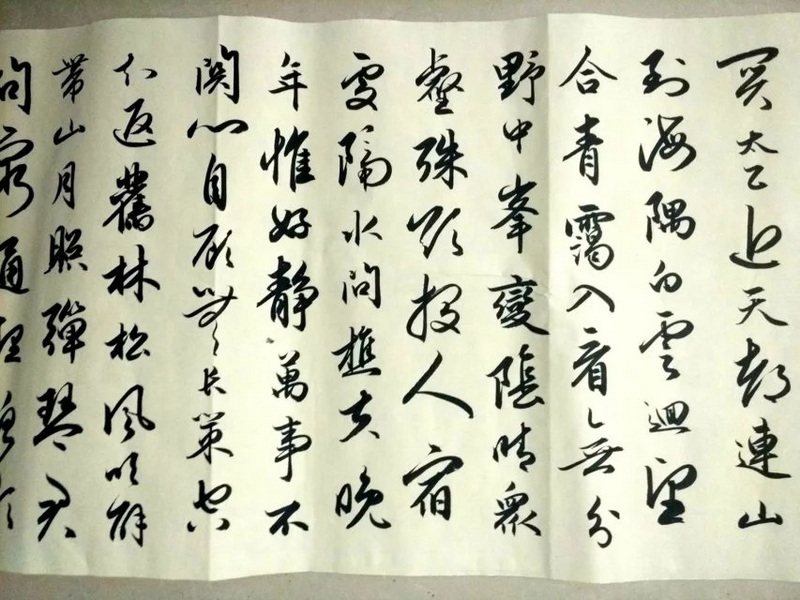 太乙近天都連山
到海隅白雲迴望
合青靄入看無分
野中峯變陰晴衆
壑殊欲投人宿
處隔水問樵夫晚
年惟好靜萬事不
関心自顧無長策空
知返舊林松風吹解
帶山月照彈琴君
問窮通理漁歌